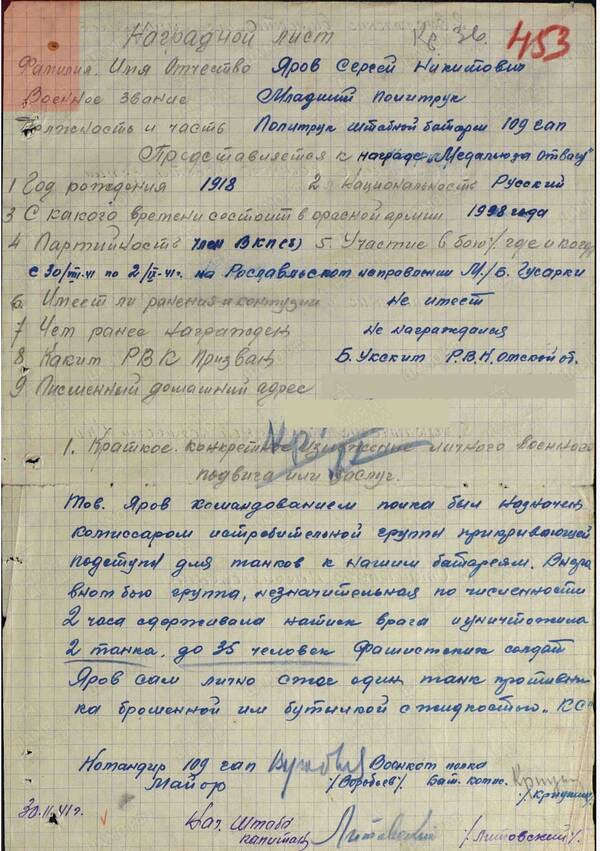 Наградной лист Кр. Зв. 453
Фамилия. Имя Отчество Яров Сергей Никитович
Военное звание Младший Политрук
Должность и часть Политрук штабной батареи 109 сап
Представляется к награде „Медалью за отвагу"
1 Год рождения 1918 2 Национальность Русский
3 С какого времени состоит в красной армии 1938 года
4 Партийность член ВКП(б) 5. Участие в бою/ где и когда
с 30/VIII-41 по 2/IX-41г. на Рославльском направлении М./Б. Гусарки
6 Имеет ли ранения и контузии Не имеет
7 Чем ранее награжден Не награждался
8 Каким РВК Призван Б. Укским Р.В.К. Омской об.
9 Писменный домашний адрес
1. Краткое. конкретное изложение личного военного
подвига или заслуг.
Тов. Яров командованием полка был назначен
комиссаром истребительной группы прикрывающей
подступы для танков к нашим батареям. В нера
вном бою группа, незначительная по численности
2 часа сдерживала натиск врага и уничтожила
2 танка, до 35 человек Фашистских солдат
Яров сам лично сжег один танк противни-
ка брошенной им бутылкой с жидкостью „КС"
Командир 109 сап Военком полка
Майор /Воробьев/ Бат. комис.
Нач. Штаба
капитан /Литовский/